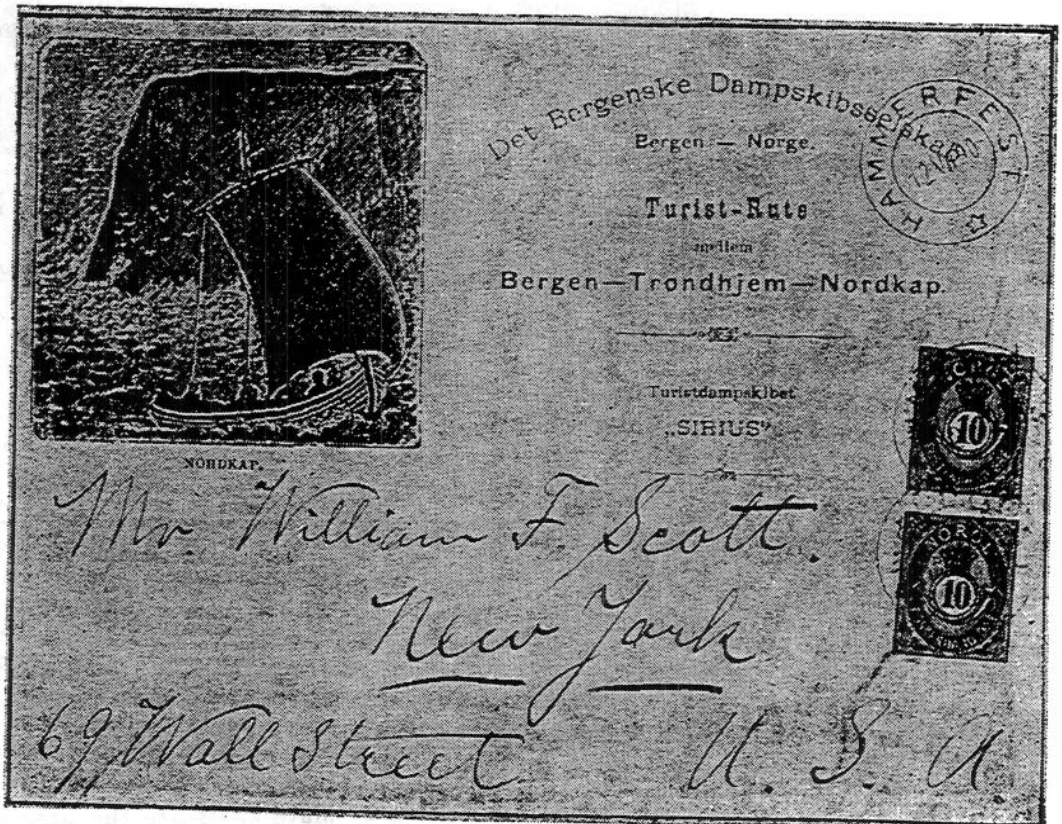 Det Bergenske Dampskibsselskab
Bergen — Norge.
HAMMERFEST
Turist-Rute
mellem
Bergen—Trondhjem—Nordkap.
Turistdampskibet
„SIRIUS"
NORDKAP.
NORGE
10
NORGE
10
Mr. William F. Scott.
New York
69 Wall Street U. S. A.